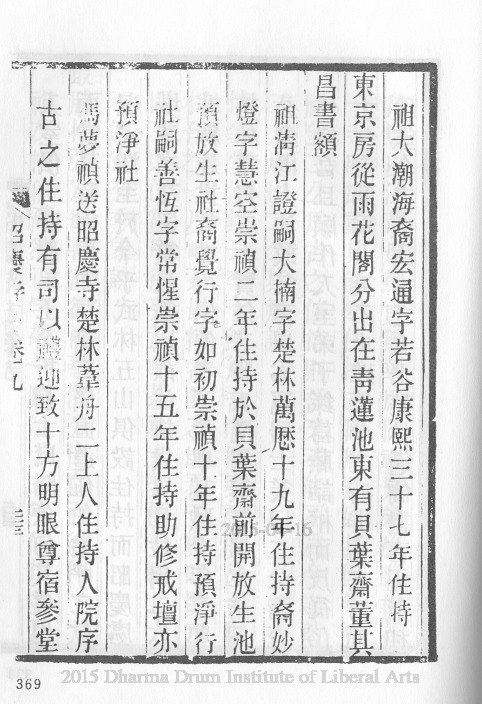 祖大潮海裔宏通字若谷康熙三十七年住持
東京房從雨花閣分出在青蓮池東有貝葉齋董其
昌書額
祖淸江證嗣大楠字楚林萬歷十九年住持裔妙
燈字慧空崇禎二年住持於貝葉齋前開放生池
預放生社裔覺行字如初崇禎十年住持預淨行
社嗣善恆字常惺崇禎十五年住持助修戒壇亦
預淨社
馮夢禎送昭慶寺楚林葦舟二上人住持入院序
古之住持有司以禮迎致十方明眼尊宿參堂
昭慶寺 卷九
369
2015 Dharma Drum Institute of Liberal Arts